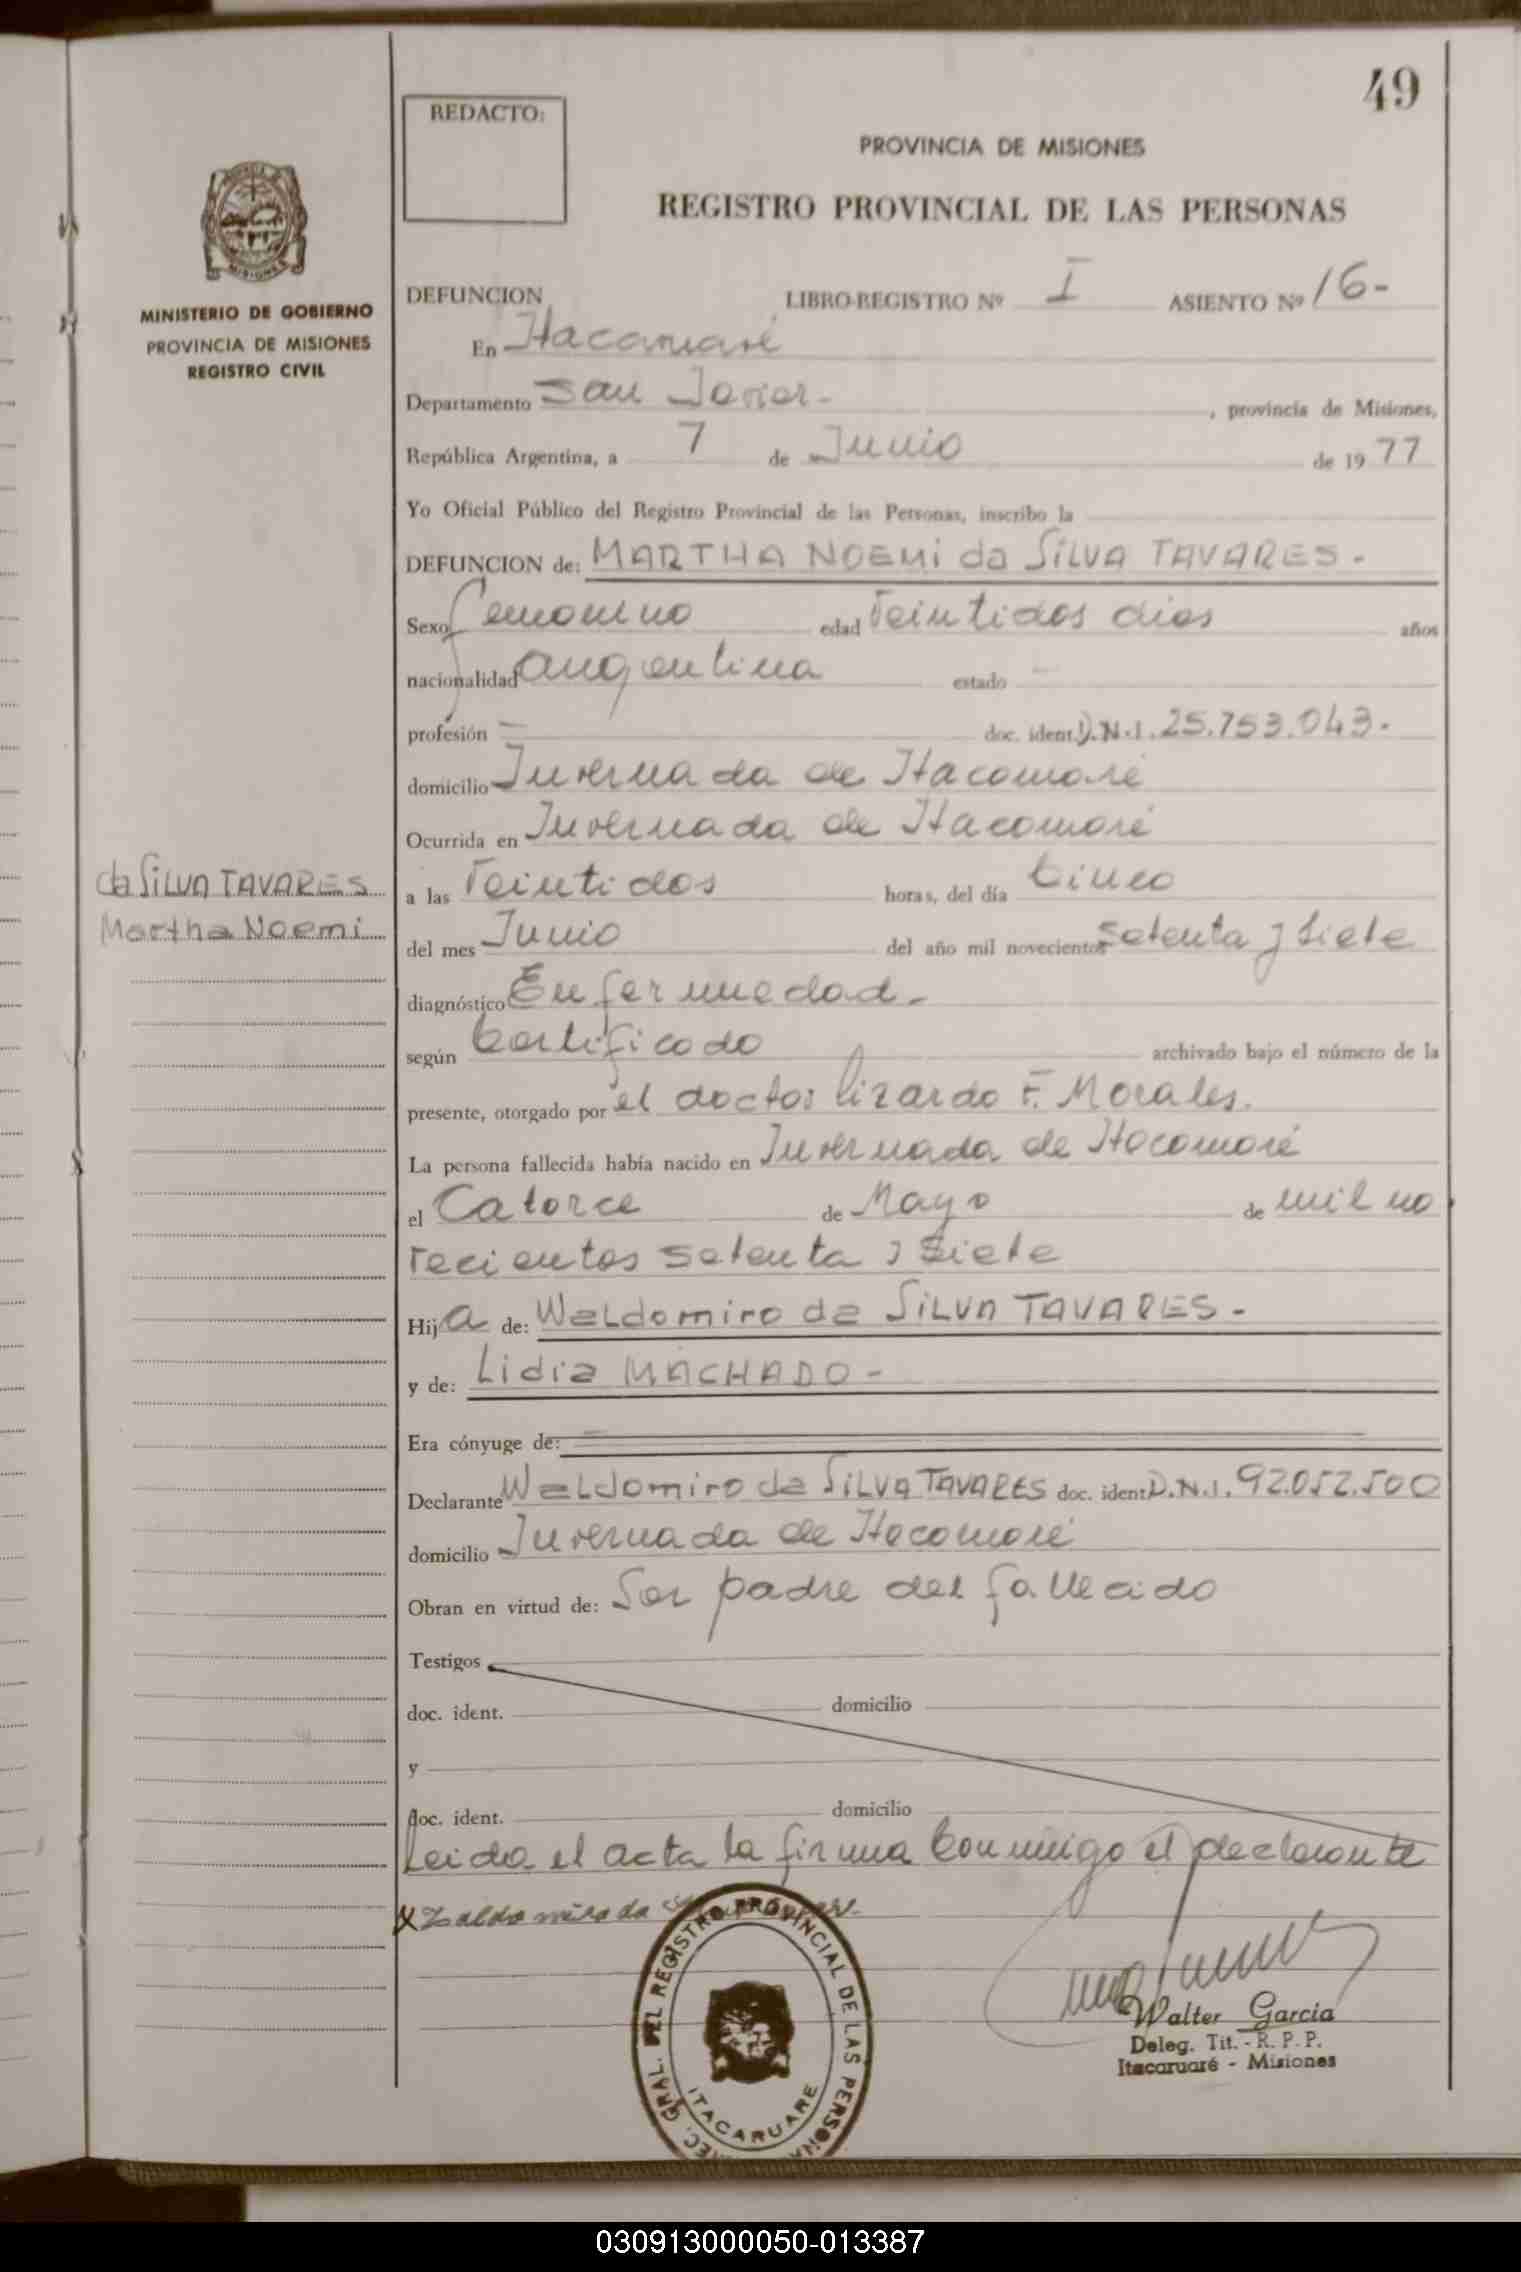 49
REDACTO:
PROVINCIA DE MISIONES
REGISTRO PROVINCIAL DE LAS PERSONAS
MISIONES
MINISTERIO DE GOBIERNO
PROVINCIA DE MISIONES
REGISTRO CIVIL
DEFUNCION LIBRO-REGISTRO Nº I ASIENTO Nº 16-
En Itacaruaré
Departamento San Javier - , provincia de Misiones,
República Argentina, a 7 de Junio de 1977
Yo Oficial Público del Registro Provincial de las Personas, inscribo la
DEFUNCION de: MARTHA NOEMI da SILVA TAVARES -
Sexo femenino edad veintidos dias años
nacionalidad argentina estado -
profesión - doc. ident. D.N.I. 25.753.043-
domicilio Invernada de Itacaruaré
Ocurrida en Invernada de Itacaruaré
a las veintidos horas, del día Cinco
da SILVA TAVARES
Martha Noemi
del mes Junio del año mil novecientos setenta y siete
diagnóstico Enfermedad -
según Certificado archivado bajo el número de la
presente, otorgado por el doctor Lizardo F. Morales.
La persona fallecida había nacido en Invernada de Itacaruaré
el Catorce de Mayo de mil no
vecientos setenta y siete
Hija de: Waldomiro da SILVA TAVARES -
y de: Lidia MACHADO -
Era cónyuge de:
Declarante Waldomiro da SILVA TAVARES doc. ident. D.N.I. 92.052.500
domicilio Invernada de Itacaruaré
Obran en virtud de: Ser padre del fallecido
Testigos
doc. ident. domicilio
y
doc. ident. domicilio
Leida el acta la firma conmigo el declarante
X Zaldo miro da
GRAL. DEL REGISTRO PROVINCIAL DE LAS PERSONA
ITACARUARE
Walter Garcia
Deleg. Tit. - R. P. P.
Itacaruaré - Misiones
030913000050-013387